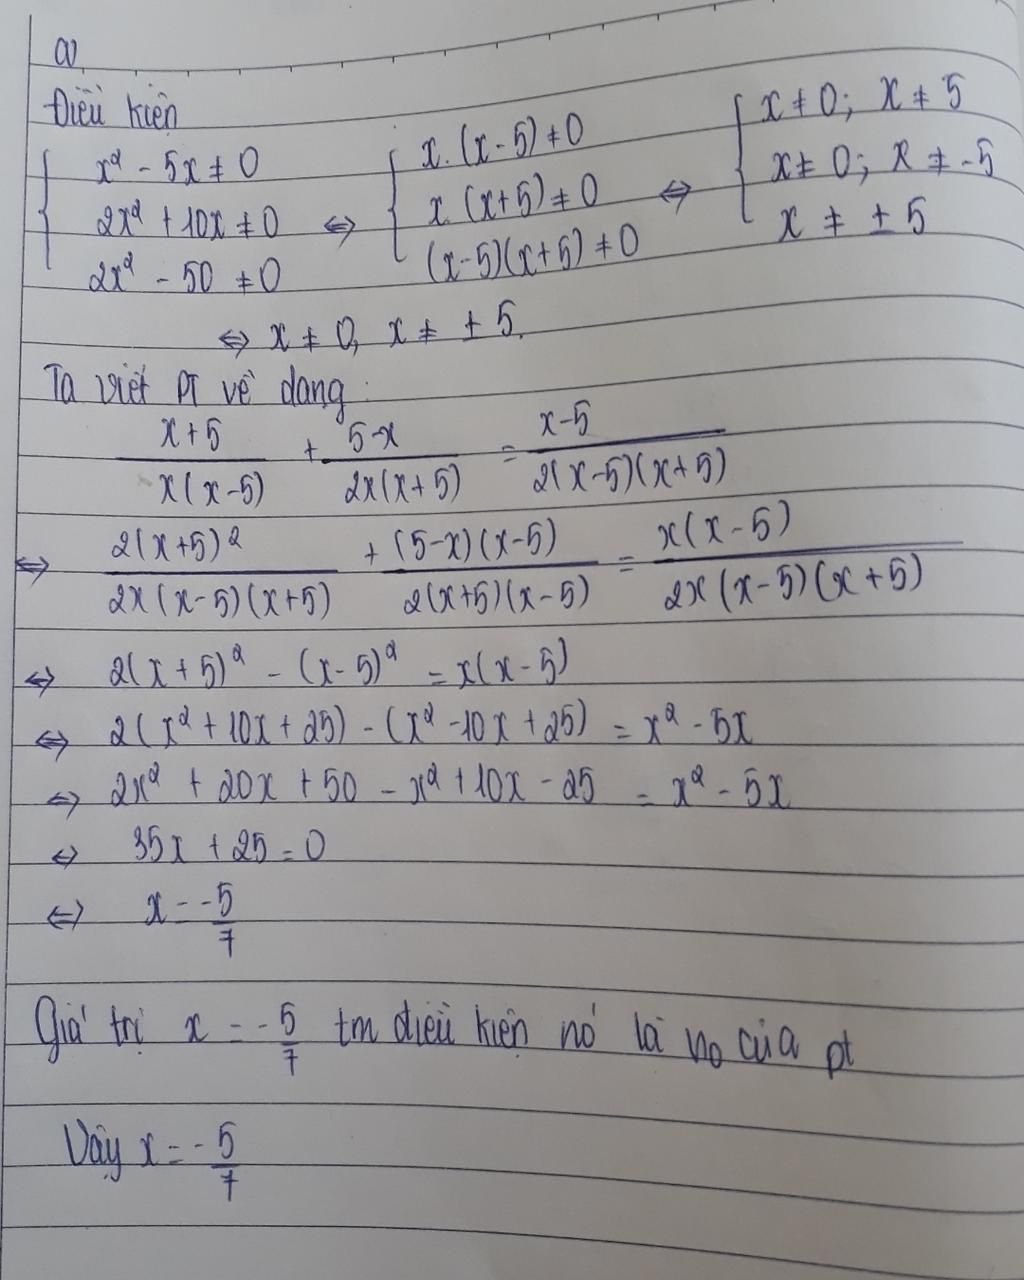 a)
Điều kiện
{ x² - 5x ≠ 0
2x² + 10x ≠ 0
2x² - 50 ≠ 0
⇔ { x.(x-5) ≠ 0
x.(x+5) ≠ 0
(x-5)(x+5) ≠ 0
⇔ { x ≠ 0; x ≠ 5
x ≠ 0; x ≠ -5
x ≠ ± 5
⇔ x ≠ 0, x ≠ ± 5.
Ta viết PT về dạng:
(x+5)/(x(x-5)) + (5-x)/(2x(x+5)) = (x-5)/(2(x-5)(x+5))
⇔ (2(x+5)²)/(2x(x-5)(x+5)) + ((5-x)(x-5))/(2(x+5)(x-5)) = (x(x-5))/(2x(x-5)(x+5))
⇔ 2(x+5)² - (x-5)² = x(x-5)
⇔ 2(x²+10x+25) - (x²-10x+25) = x² - 5x
⇔ 2x² + 20x + 50 - x² + 10x - 25 = x² - 5x
⇔ 35x + 25 = 0
⇔ x = -5/7
Giá trị x = -5/7 tm điều kiện nó là no của pt
Vậy x = -5/7